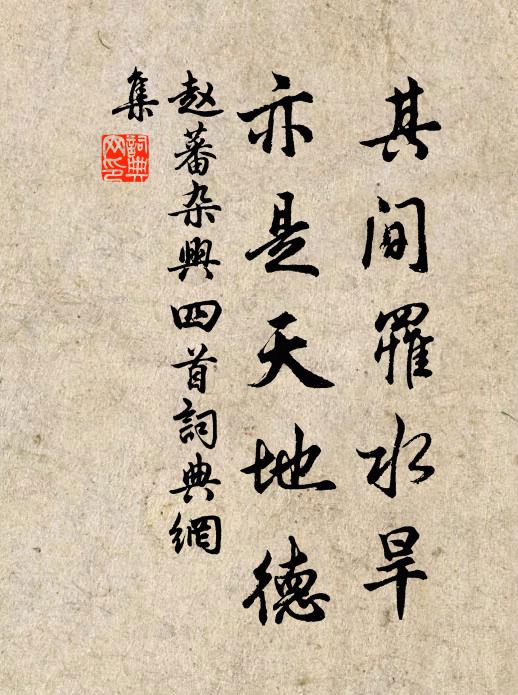 其间罹水旱
亦是天地德
赵蕃杂興四首詞典網
集
詞典
网印